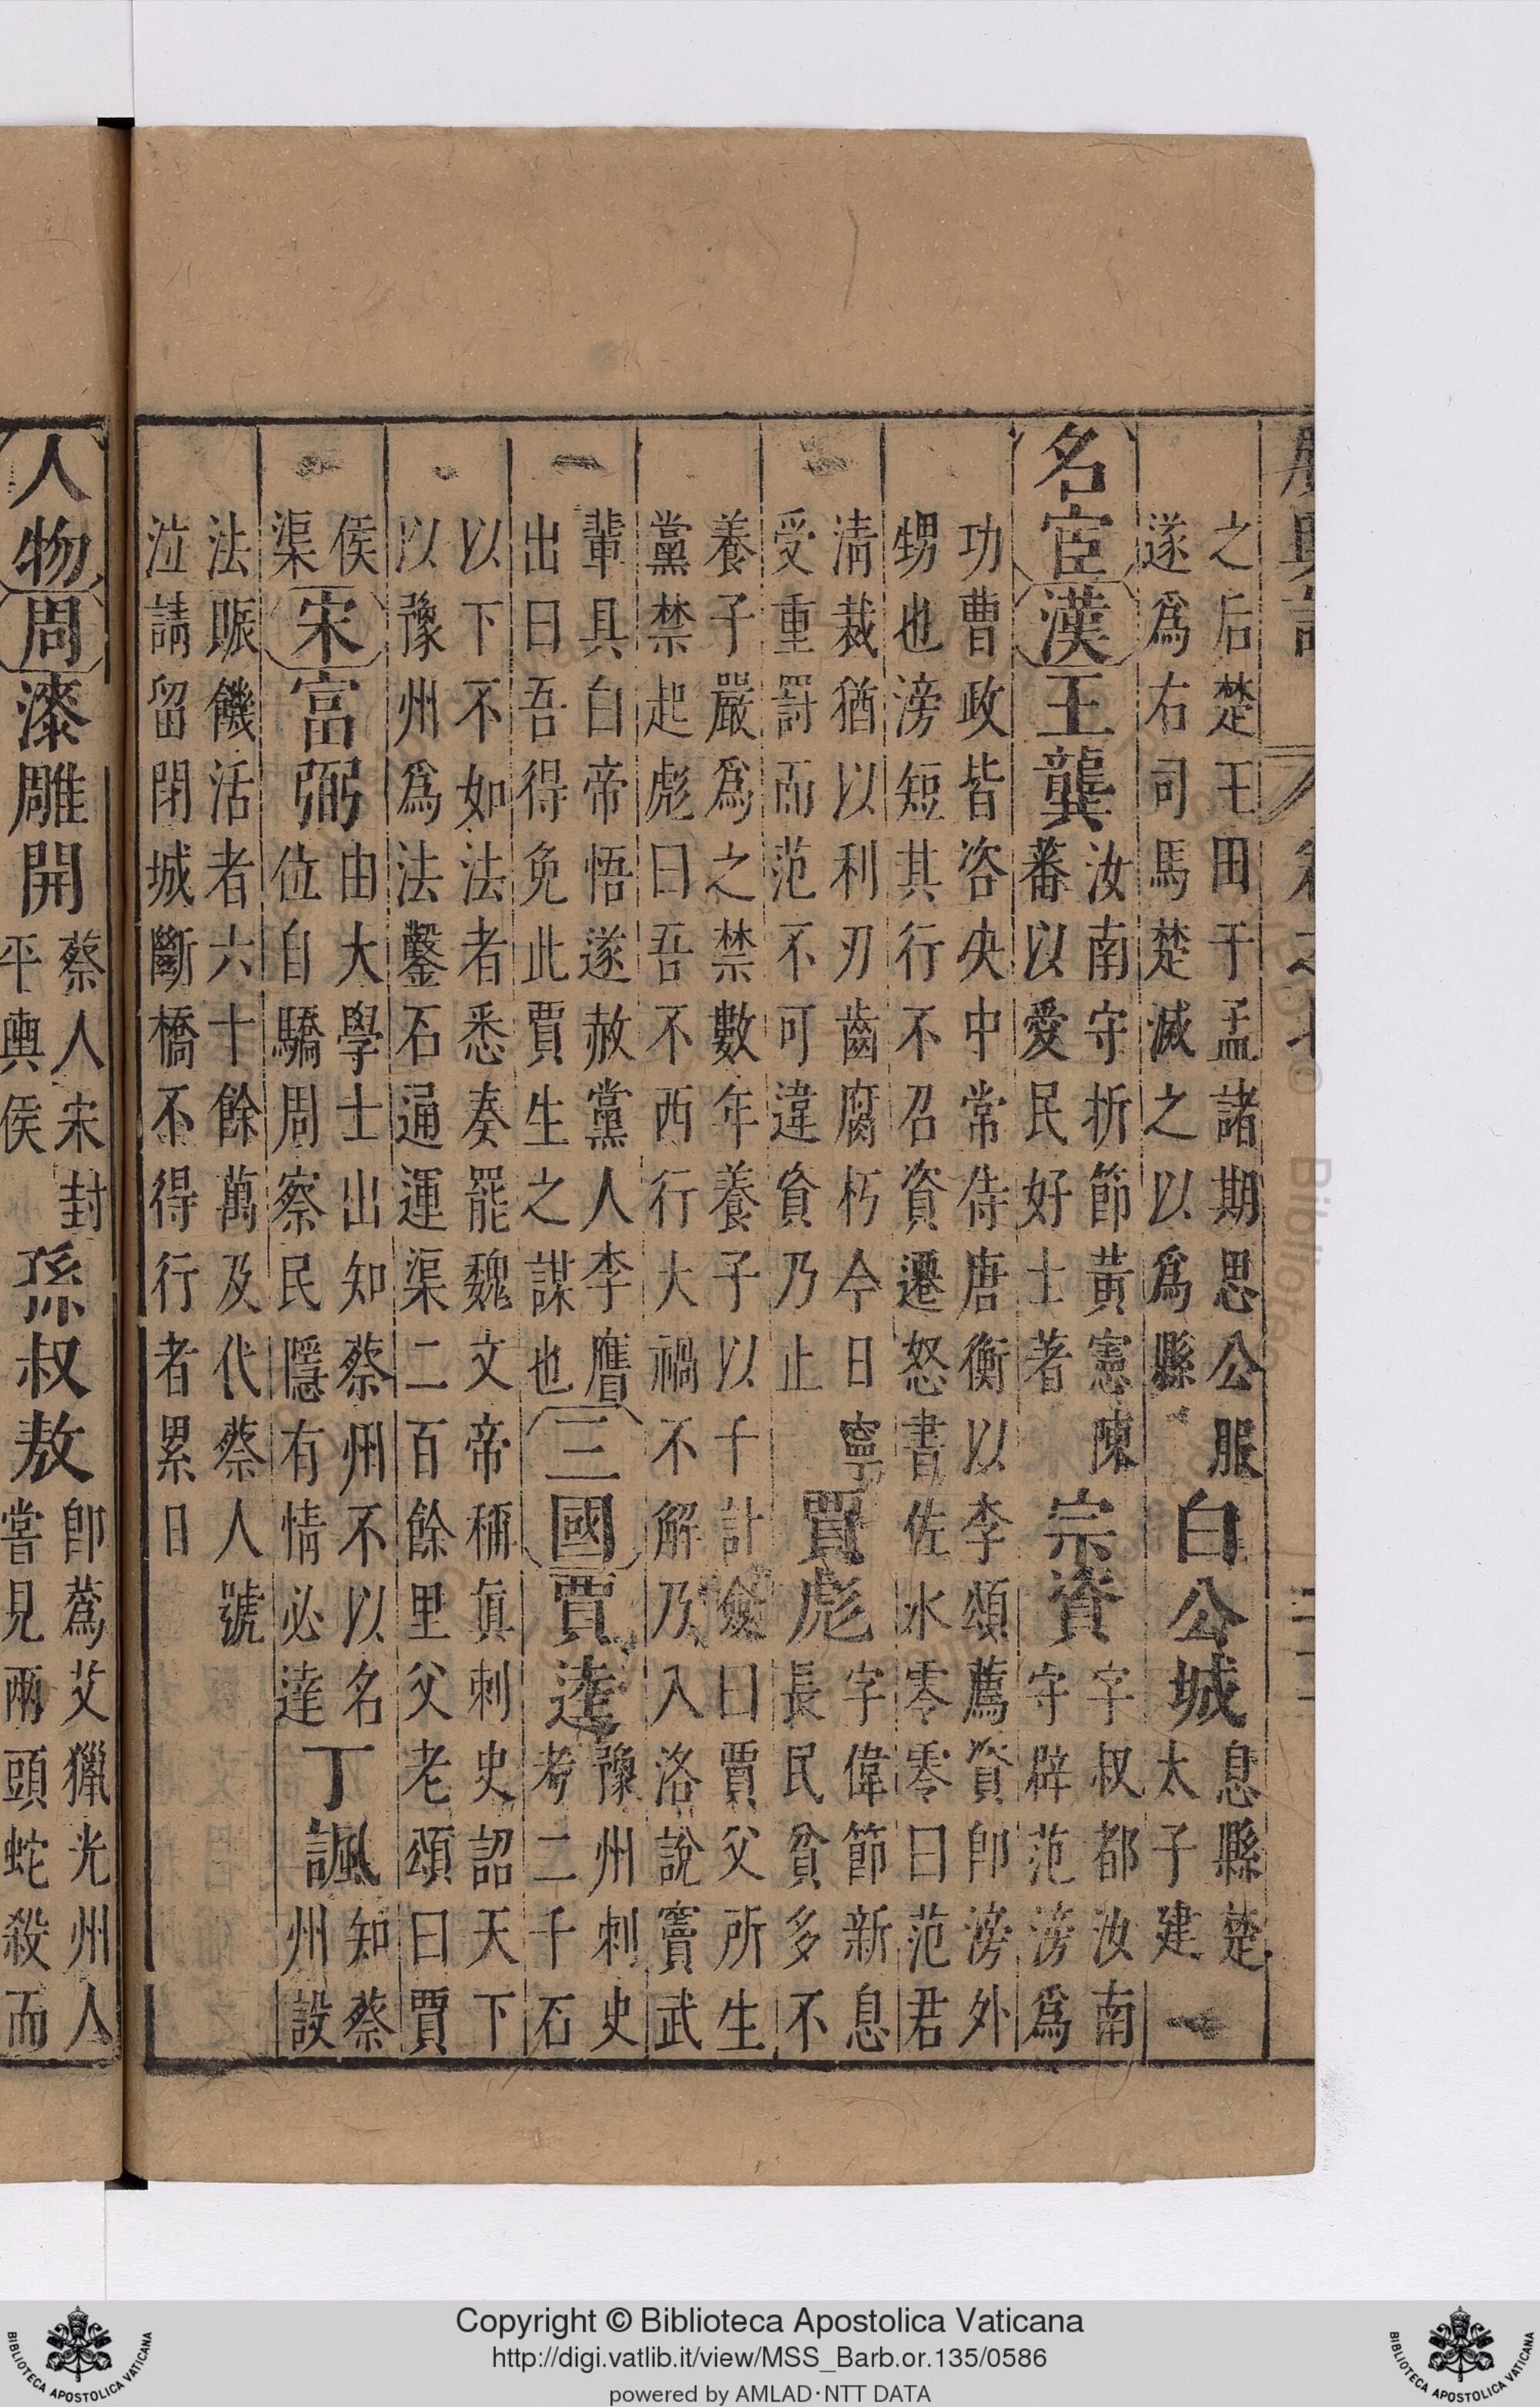 之后楚王田于孟諸期思公服
遂爲右司馬楚滅之以爲縣
白公城
息縣楚
太子建
名宦 漢 王龔
汝南守折節黃憲陳
蕃以愛民好士著
宗資
字叔都汝南
守辟范滂爲
功曹政皆咨央中常侍唐衡以李頌薦資卽滂外
甥也滂短其行不召資遷怒書佐水零零曰范君
淸裁猶以利刃齒腐朽今日寧
受重罰而范不可違貟乃止
賈彪
字偉節新息
長民貧多不
養子嚴爲之禁數年養子以千計僉曰賈父所生
黨禁起彪曰吾不西行大禍不解乃入洛說竇武
輩具白帝悟遂赦黨人李膺
出曰吾得免此賈生之謀也
三國 賈逵
豫州刺史
考二千石
以下不如法者悉奏罷魏文帝稱眞刺史詔天下
以豫州爲法鑿石通運渠二百餘里父老頌曰賈
侯
渠
宋 富弼
由大學士出知蔡州不以名
位自驕周察民隱有情必達
丁諷
知蔡
州設
法賑饑活者六十餘萬及代蔡人號
泣請留閉城斷橋不得行者累日
人物 周 漆雕開
蔡人宋封
平輿侯
孫叔敖
卽蒍艾獵光州人
嘗見兩頭蛇殺而
Copyright © Biblioteca Apostolica Vaticana
http://digi.vatlib.it/view/MSS_Barb.or.135/0586
powered by AMLAD·NTT DATA
BIBLIOTECA APOSTOLICA VATICANA
BIBLIOTECA APOSTOLICA VATICANA